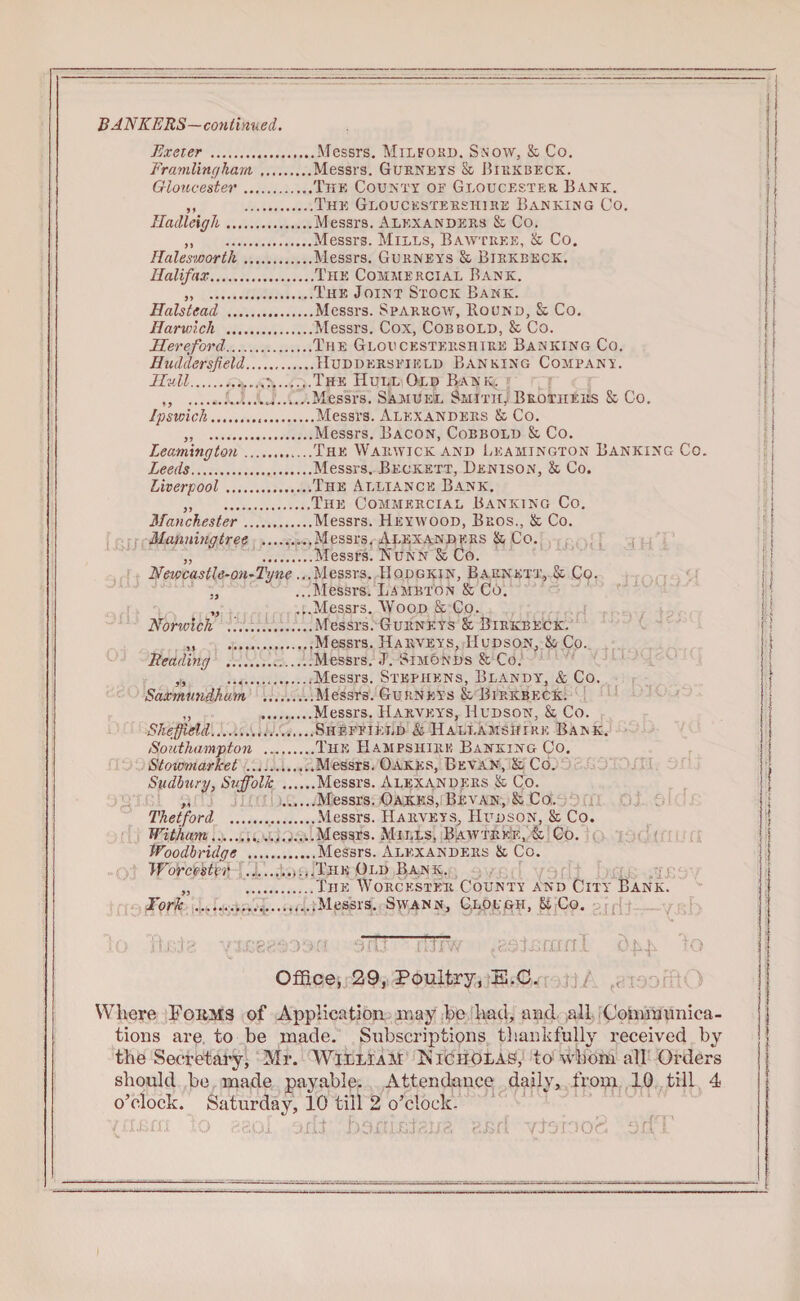 BANKERS—continued.
Exeter ....................Messrs. MILFORD, SNOW, & Co.
Framlingham .........Messrs. GURNEYS & BIRKBECK.
Gloucester ............THE COUNTY OF GLOUCESTER BANK.
,, ............THE GLOUCESTERSHIRE BANKING Co.
Hadleigh ...............Messrs. ALEXANDERS & Co.
,, ...............Messrs. MILLS, BAWTREE, & Co.
Halesworth ............Messrs. GURNEYS & BIRKBECK.
Halifax..................THE COMMERCIAL BANK.
,, ....................THE JOINT STOCK BANK.
Halstead ...............Messrs. SPARROW, ROUND, & Co.
Harwich ...............Messrs. COX, COBBOLD, & Co.
Hereford...............THE GLOUCESTERSHIRE BANKING Co.
Huddersfield............HUDDERSFIELD BANKING COMPANY.
Hull.....................THE HULL OLD BANK.
,, .....................Messrs. SAMUEL SMITH, BROTHERS & Co.
Ipswich..................Messrs. ALEXANDERS & Co.
,, ....................Messrs. BACON, COBBOLD & Co.
Leamington ............THE WARWICK AND LEAMINGTON BANKING Co.
Leeds.....................Messrs. BECKETT, DENISON, & Co.
Liverpool ...............THE ALLIANCE BANK.
,, ..................THE COMMERCIAL BANKING Co.
Manchester ............Messrs. HEYWOOD, BROS., & Co.
Manningtree .........Messrs. ALEXANDERS & Co.
,, .........Messrs. NUNN & Co.
Newcastle-on-Tyne ...Messrs. HODGKIN, BARNETT, & Co.
,, ...Messrs. LAMBTON & Co.
,, ...Messrs. WOOD & Co.
Norwich ...............Messrs. GURNEYS & BIRKBECK.
,, ...............Messrs. HARVEYS, HUDSON, & Co.
Reading ...............Messrs. J. SIMONDS & Co.
,, ...............Messrs. STEPHENS, BLANDY, & Co.
Saxmundham .........Messrs. GURNEYS & BIRKBECK.
,, .........Messrs. HARVEYS, HUDSON, & Co.
Sheffield..................SHEFFIELD & HALLAMSHIRE BANK.
Southampton .........THE HAMPSHIRE BANKING Co.
Stowmarket ............Messrs. OAKES, BEVAN, & Co.
Sudbury, Suffolk ......Messrs. ALEXANDERS & Co.
,, ......Messrs. OAKES, BEVAN, & Co.
Thetford ...............Messrs. HARVEYS, HUDSON, & Co.
Witham ...............Messrs. MILLS, BAWTREE, & Co.
Woodbridge ............Messrs. ALEXANDERS & Co.
Worcester ............THE OLD BANK.
,, ............THE WORCESTER COUNTY AND CITY BANK.
York .....................Messrs. SWANN, CLOUGH, & Co.
Office, 29, Poultry, E.C.
Where FORMS of Application may be had, and all Communica-
tions are to be made. Subscriptions thankfully received by
the Secretary, Mr. WILLIAM NICHOLAS, to whom all Orders
should be made payable. Attendance daily, from 10 till 4
o'clock. Saturday, 10 till 2 o'clock.